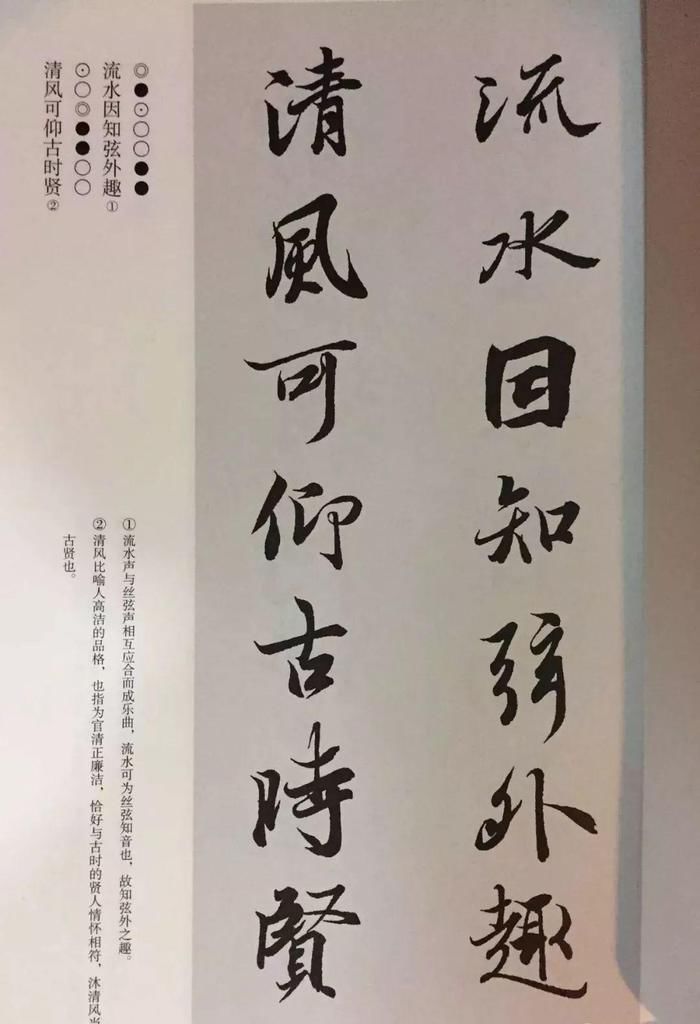 流水因知弦外趣
清風可仰古時賢
◎●⊙○○●●
流水因知弦外趣①
⊙○◎●●○○
清风可仰古时贤②
① 流水声与丝弦声相互应合而成乐曲，流水可为丝弦知音也，故知弦外之趣。
② 清风比喻人高洁的品格，也指为官清正廉洁，恰好与古时的贤人情怀相符，沐清风当
古贤也。